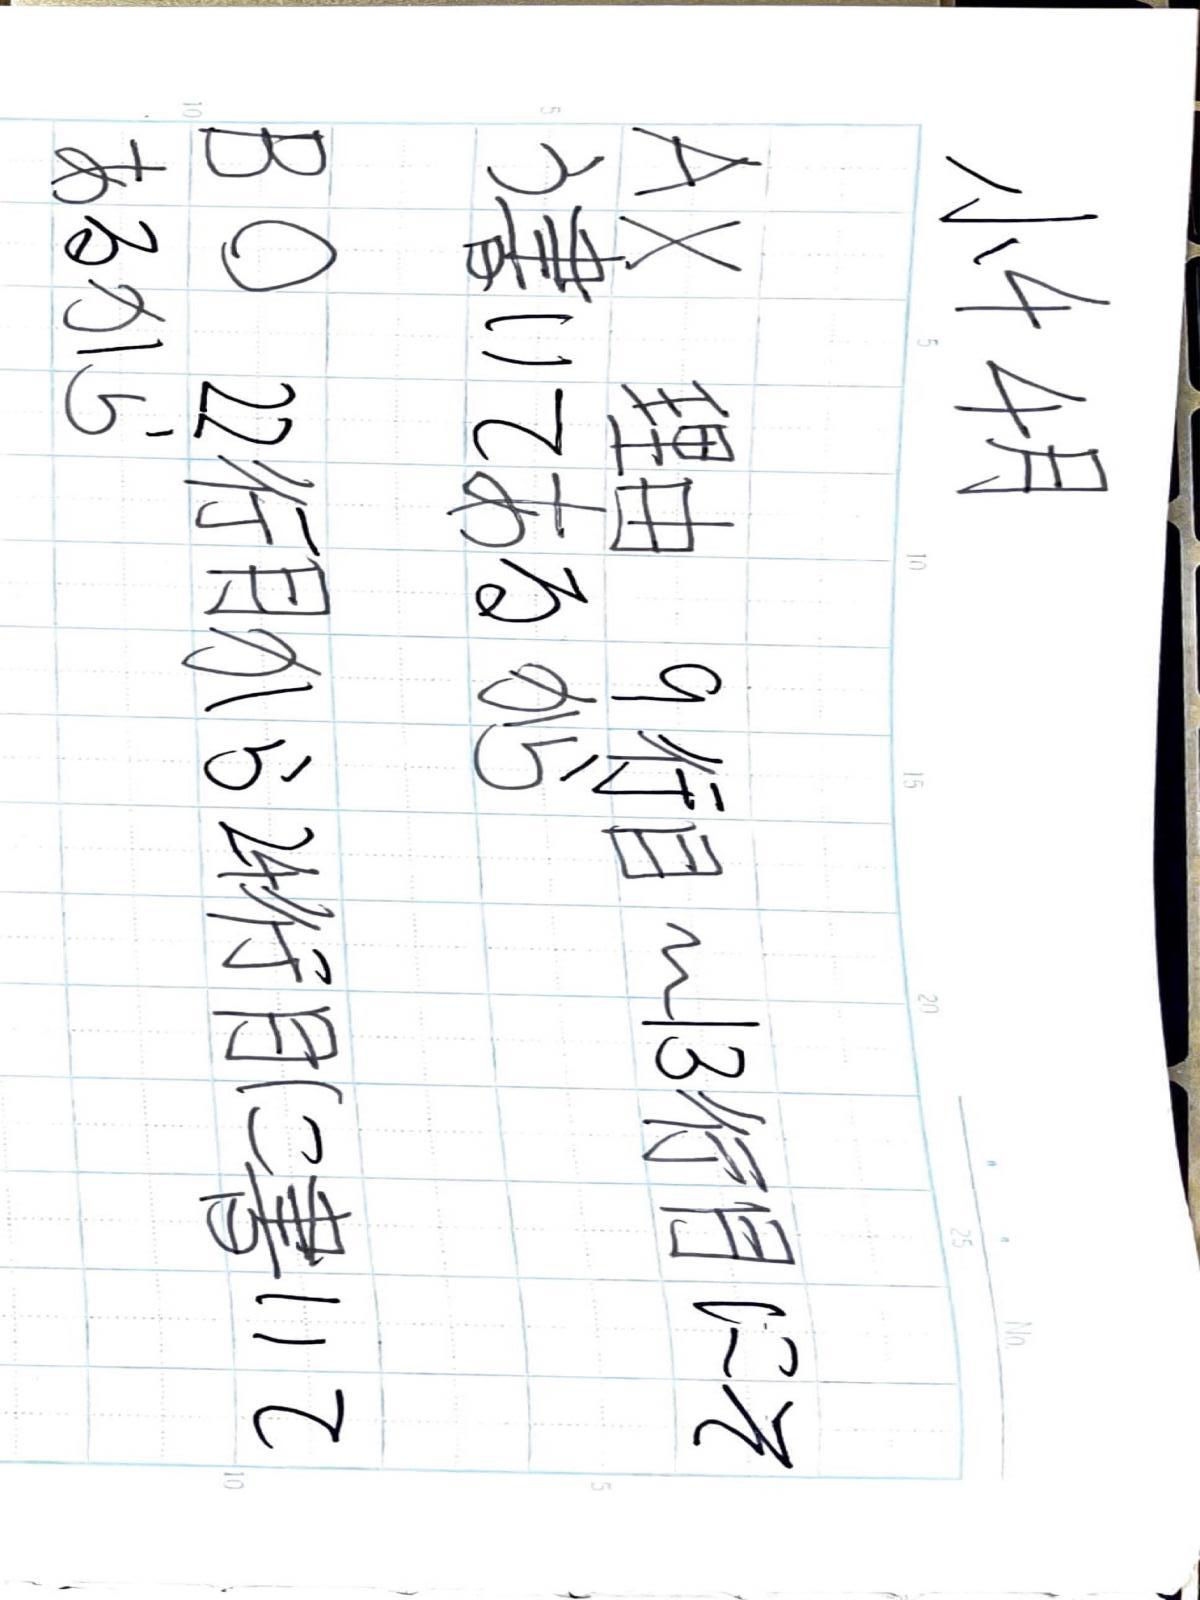 小4 4月
A X 理由 9行目〜13行目にそ
う書いてあるから
B O 22行目から24行目に書いて
あるから
5
10
15
20
25
No.
5
10
5
10